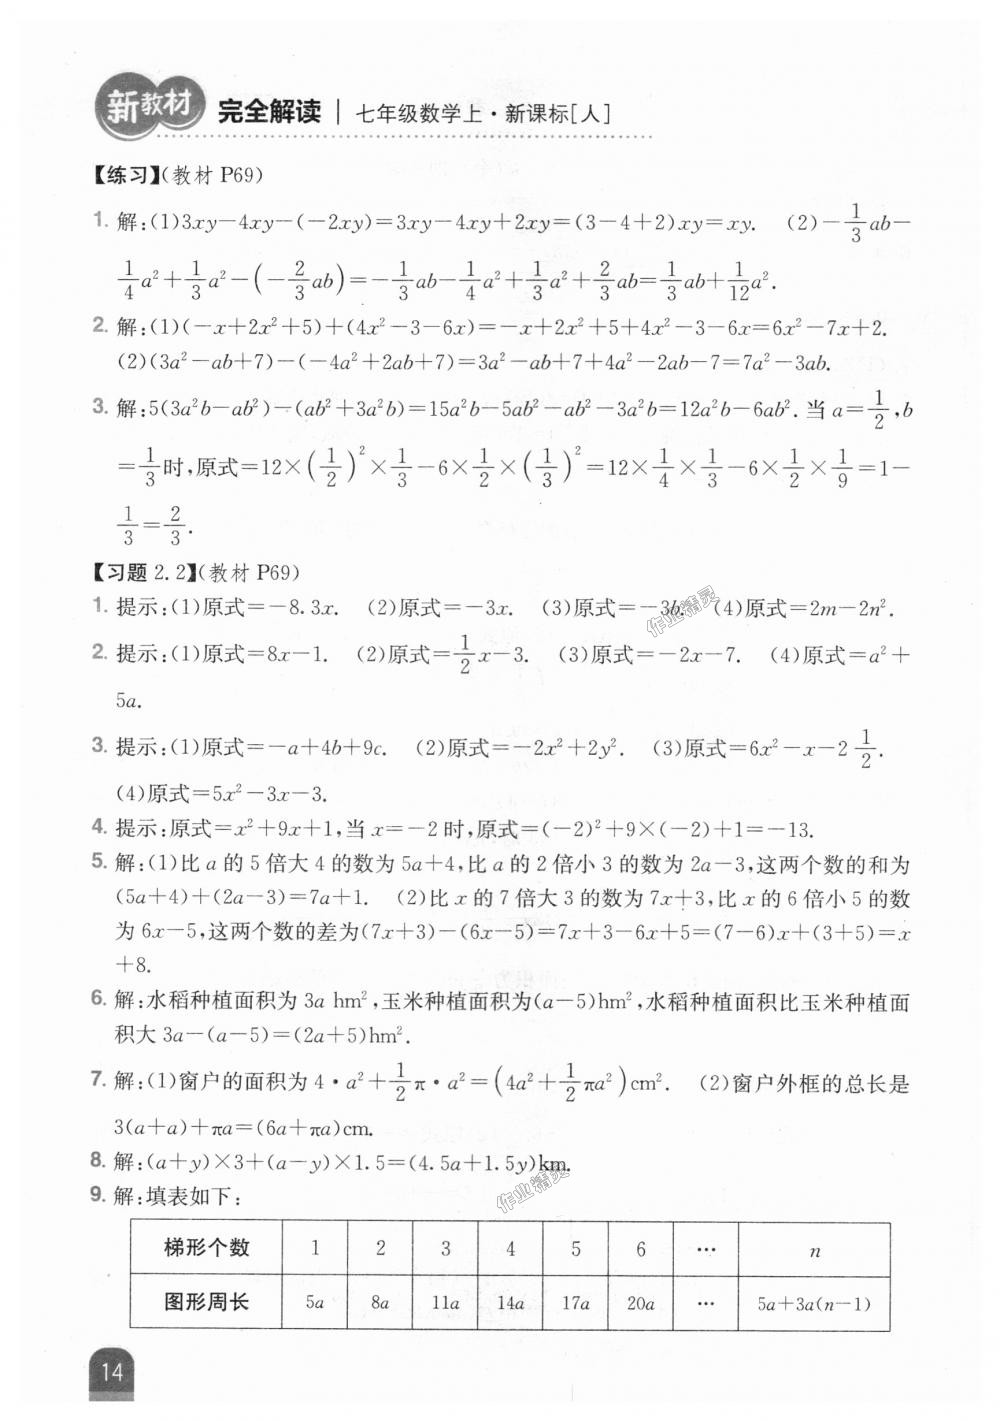 新教材 完全解读 | 七年级数学上·新课标[人]
【练习】(教材 P69)
1. 解:(1)3xy−4xy−(−2xy)=3xy−4xy+2xy=(3−4+2)xy=xy. (2)−1/3ab−
1/4a²+1/3a²−(−2/3ab)=−1/3ab−1/4a²+1/3a²+2/3ab=1/3ab+1/12a².
2. 解:(1)(−x+2x²+5)+(4x²−3−6x)=−x+2x²+5+4x²−3−6x=6x²−7x+2.
(2)(3a²−ab+7)−(−4a²+2ab+7)=3a²−ab+7+4a²−2ab−7=7a²−3ab.
3. 解:5(3a²b−ab²)−(ab²+3a²b)=15a²b−5ab²−ab²−3a²b=12a²b−6ab².当 a=1/2,b
=1/3时,原式=12×(1/2)²×1/3−6×1/2×(1/3)²=12×1/4×1/3−6×1/2×1/9=1−
1/3=2/3.
【习题 2.2】(教材 P69)
1. 提示:(1)原式=−8.3x. (2)原式=−3x. (3)原式=−3b. (4)原式=2m−2n².
2. 提示:(1)原式=8x−1. (2)原式=1/2x−3. (3)原式=−2x−7. (4)原式=a²+
5a.
3. 提示:(1)原式=−a+4b+9c. (2)原式=−2x²+2y². (3)原式=6x²−x−2 1/2.
(4)原式=5x²−3x−3.
4. 提示:原式=x²+9x+1,当 x=−2 时,原式=(−2)²+9×(−2)+1=−13.
5. 解:(1)比 a 的 5 倍大 4 的数为 5a+4,比 a 的 2 倍小 3 的数为 2a−3,这两个数的和为
(5a+4)+(2a−3)=7a+1. (2)比 x 的 7 倍大 3 的数为 7x+3,比 x 的 6 倍小 5 的数
为 6x−5,这两个数的差为(7x+3)−(6x−5)=7x+3−6x+5=(7−6)x+(3+5)=x
+8.
6. 解:水稻种植面积为 3a hm²,玉米种植面积为(a−5)hm²,水稻种植面积比玉米种植面
积大 3a−(a−5)=(2a+5)hm².
7. 解:(1)窗户的面积为 4·a²+1/2π·a²=(4a²+1/2πa²)cm². (2)窗户外框的总长是
3(a+a)+πa=(6a+πa)cm.
8. 解:(a+y)×3+(a−y)×1.5=(4.5a+1.5y)km.
9. 解:填表如下:
梯形个数 1 2 3 4 5 6 … n
图形周长 5a 8a 11a 14a 17a 20a … 5a+3a(n−1)
14
作业精灵
作业精灵